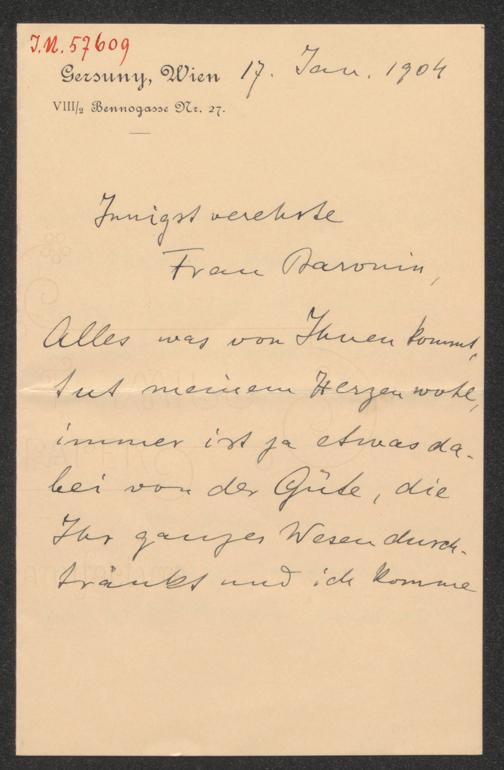 I.N. 57609
Gersuny, Wien 17. Jan. 1904
VIII/2 Bennogasse Nr. 27.
Innigst verehrte
Frau Baronin,
Alles was von Ihnen kommt,
tut meinem Herzen wohl,
immer ist ja etwas da-
bei von der Güte, die
Ihr ganzes Wesen durch-
tränkt und ich komme